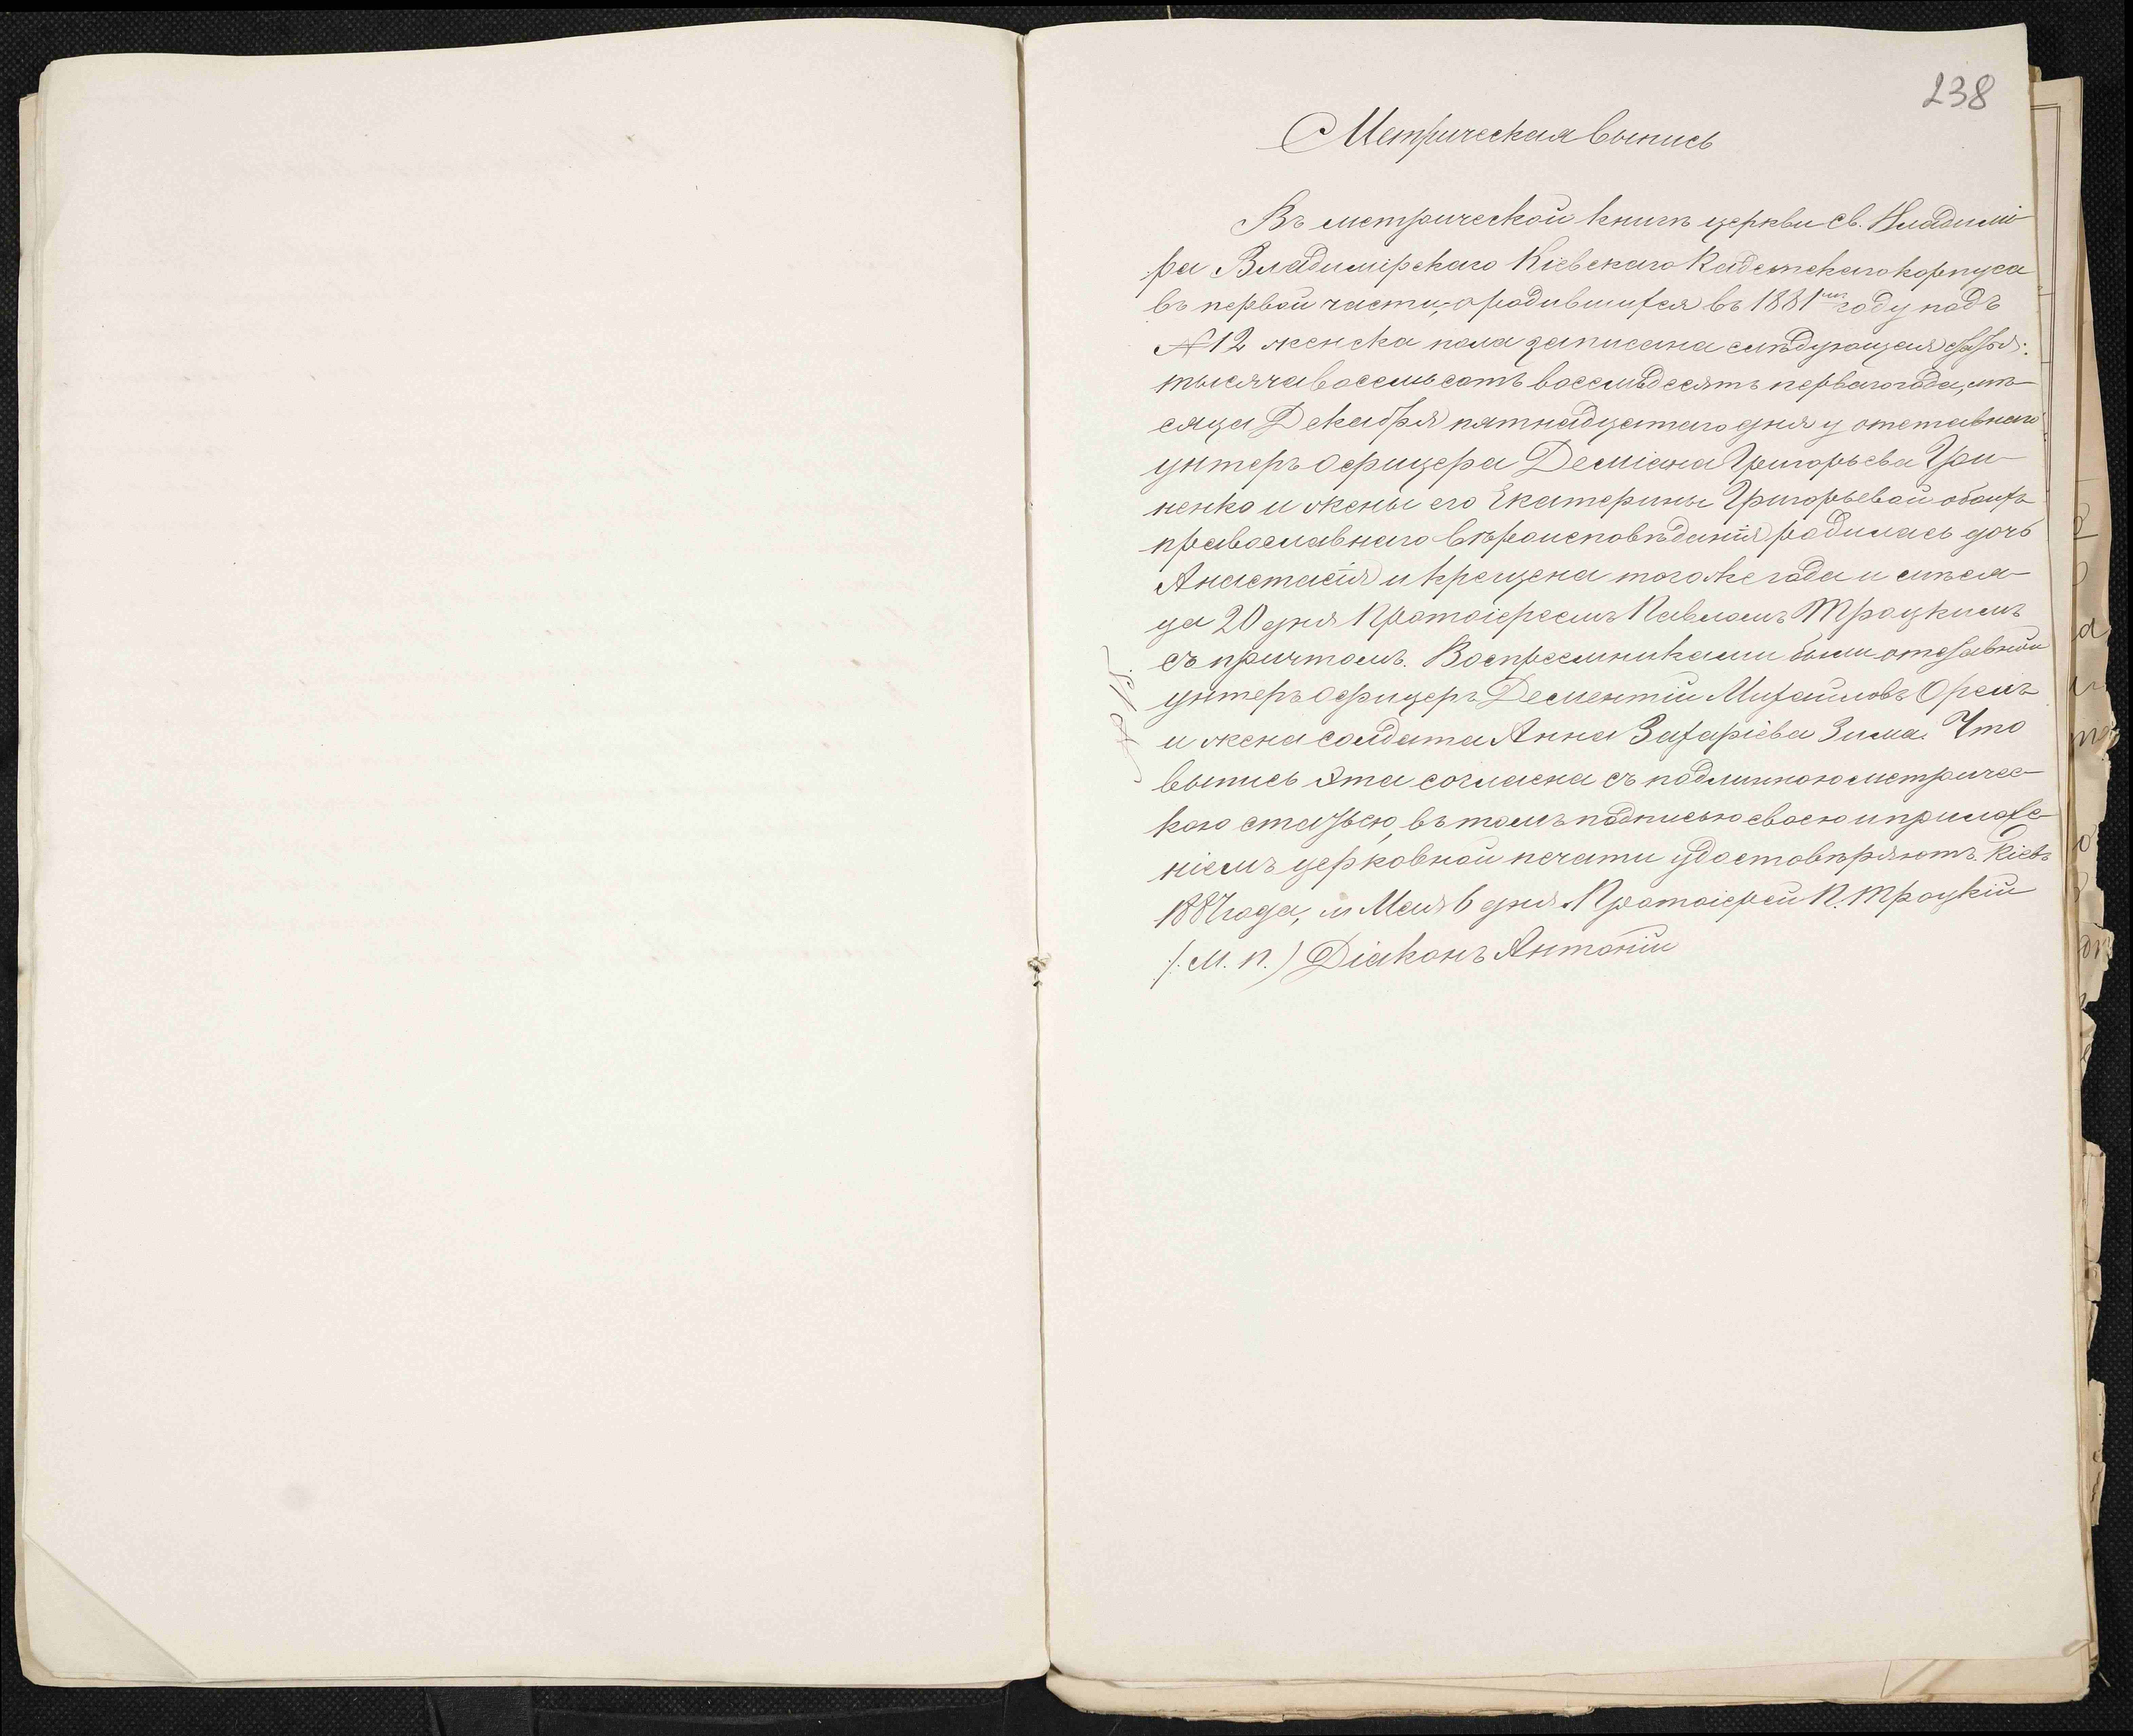 238
Метрическая выпись
Въ метрической книгѣ церкви Св. Владимі-
ра Владимірскаго Кіевскаго Кадетскаго корпуса
въ первой части, о родившихся въ 1881мъ году подъ
№ 12 женска пола записана слѣдующая статья:
тысяча восемьсотъ восемьдесятъ перваго года, мѣ-
сяца Декабря пятнадцатаго дня у отставнаго
унтеръ офицера Деміана Григорьева
ненко и жены его Екатерины Григорьевой обоихъ
православнаго вѣроисповѣданія родилась дочь
Анастасія и крещена того же года и мѣся-
ца 20 дня Протоіереемъ Павломъ Троцкимъ
съ причтомъ. Воспреемниками были отставной
унтеръ офицеръ Дементій Михайловъ Орелъ
и жена солдата Анна Захаріева Зима. Что
выпись эта согласна съ подлинною метричес-
кою статьею, въ томъ подписью своею и приложе-
ніемъ церковной печати удостовѣряютъ. Кіевъ
1887 года, м Мая 6 дня Протоіерей П. Троцкій
(М. П.) Діаконъ Антоній